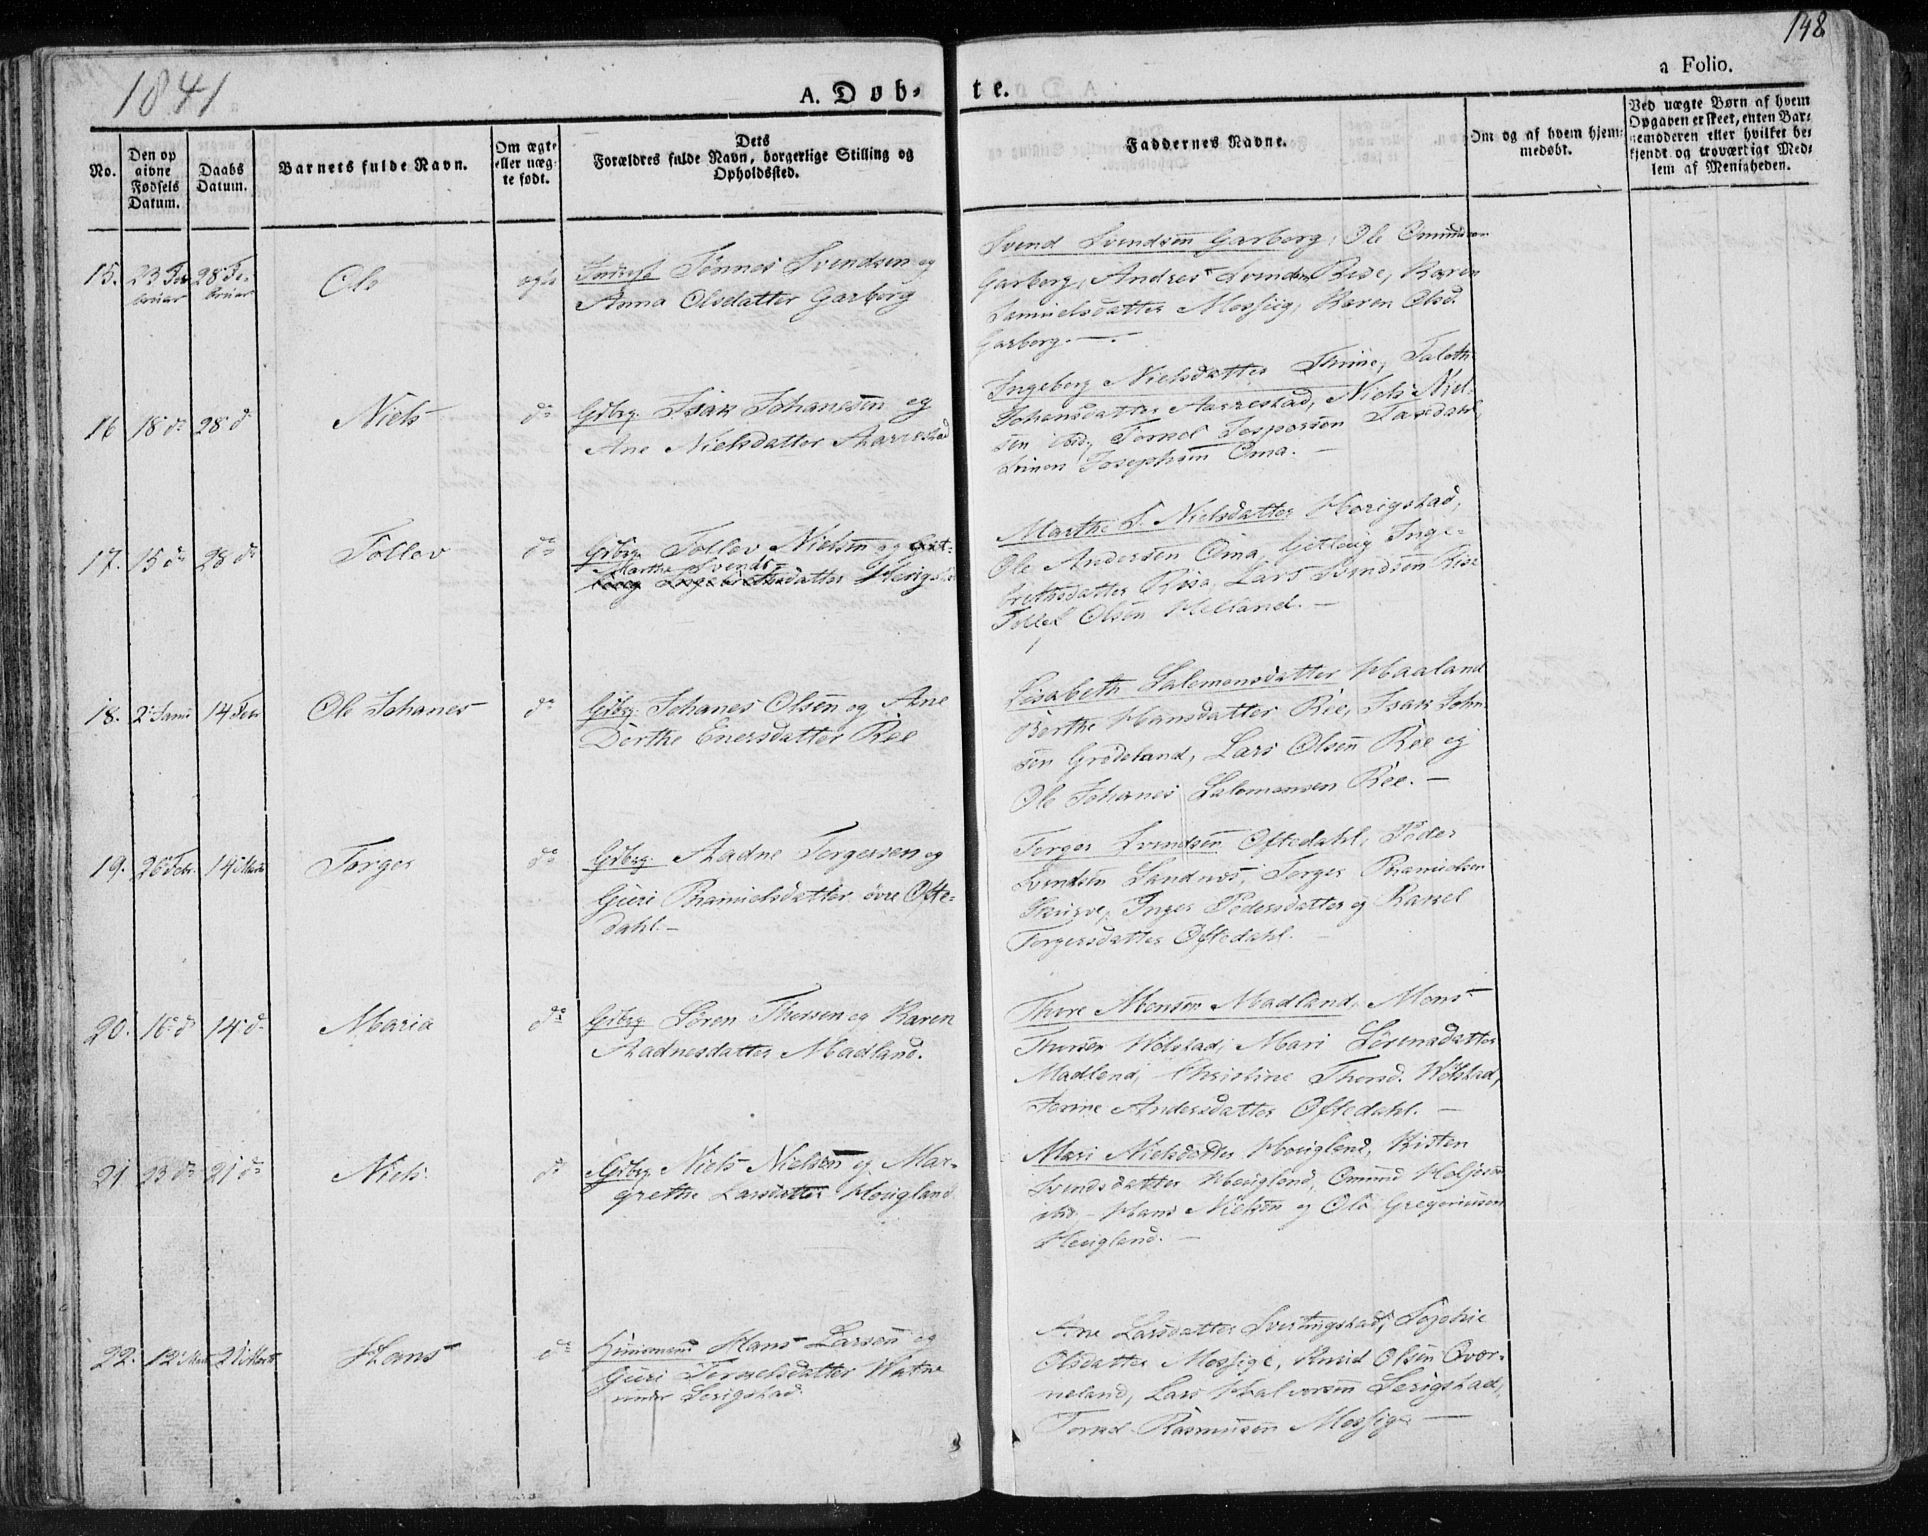 1841
148
A. Døb-
te.
a Folio.
No.
Den op
givne
Fødsels
Datum.
Daabs
Datum.
Barnets fulde Navn.
Om ægte
eller uæg-
te født.
Dets
Forældres fulde Navn, borgerlige Stilling og
Opholdssted.
Faddernes Navne.
Om og af hvem hjem-
medøbt.
Ved uægte Børn af hvem
Opgaven er skeet, enten Bar-
nemoderen eller hvilket be-
kjendt og troværdigt Med-
lem af Menigheden.
15. 23 Fe- 28 Fe-
bruar bruar
Ole
ægte
Inderst Tönnes Svendsen og
Anna Olsdatter Garborg
Svend Svendsen Garborg, Ole Omundsen
Garborg, Andres Svendsen Rise, Karen
Samuelsdatter Mossig, Karen Olsd.
Garborg. —
16 18 do 28 d
Niels
do
Gbrg. Isak Johanesen og
Ane Nielsdatter Aarrestad
Ingeborg Nielsdatter Thime,
Johansdatter Aarrestad, Niels Niel-
sen ibid, Tornel Jespersen
Simon Josephsen Oma. —
17. 15 do 28 do
Tollev
do
Gbrg. Tollev Nielsen og
Marthe Svends-
datter Herigstad
Marthe S. Nielsdatter Herigstad,
Ole Andersen Oma, Inge-
brethsdatter Risa, Lars Svendsen Rise
Tollef Olsen Helland. —
18. 2 Janu 14 Feb
Ole Johanes
do
Gbrg. Johanes Olsen og Ane
Dorthe Enersdatter Ree
Lisabeth Salomonsdatter Haaland
Berthe Hansdatter Ree, Isak John-
sen Grødeland, Lars Olsen Ree og
Ole Johanes Salomonsen Ree. —
19. 26 Febr. 14 Marts
Torger
do
Gbrg. Aadne Torgersen og
Guri Danielsdatter øvre Ofte-
dahl. —
Torger Svendsen Oftedahl, Peder
Svendsen Sandnes, Torger Danielsen
Skurve, Inger Pedersdatter og Rakel
Torgersdatter Oftedahl. —
20. 16 d 14 d.
Maria
do
Gbrg Sören Thorsen og Karen
Aadnesdatter Madland.
Thore Monsen Madland, Mons
Thorsen Wølstad, Mari Sörensdatter
Madland, Christine Thorsd. Wølstad,
Andersdatter Oftedahl. —
21 23 do 21 do
Niels
do
Gbrg Niels Nielsen og Mar-
grethe Larsdatter Houigland
Mari Nielsdatter Houigland, Kisten
Svendsdatter Houigland, Omund
ibid — Hans Nielsen og Ole Gregoriusen
Houigland. —
22. 12 Mar 21 Marts
Hans
do
Huusmand Hans Larsen og
Guri Torkelsdatter Watne
under Serigstad.
Ane Larsdatter Svertingstad, Sophie
Olsdatter Mossige, Knud Olsen Qver-
neland, Lars Halvorsen Serigstad,
Rasmusen Mossige —